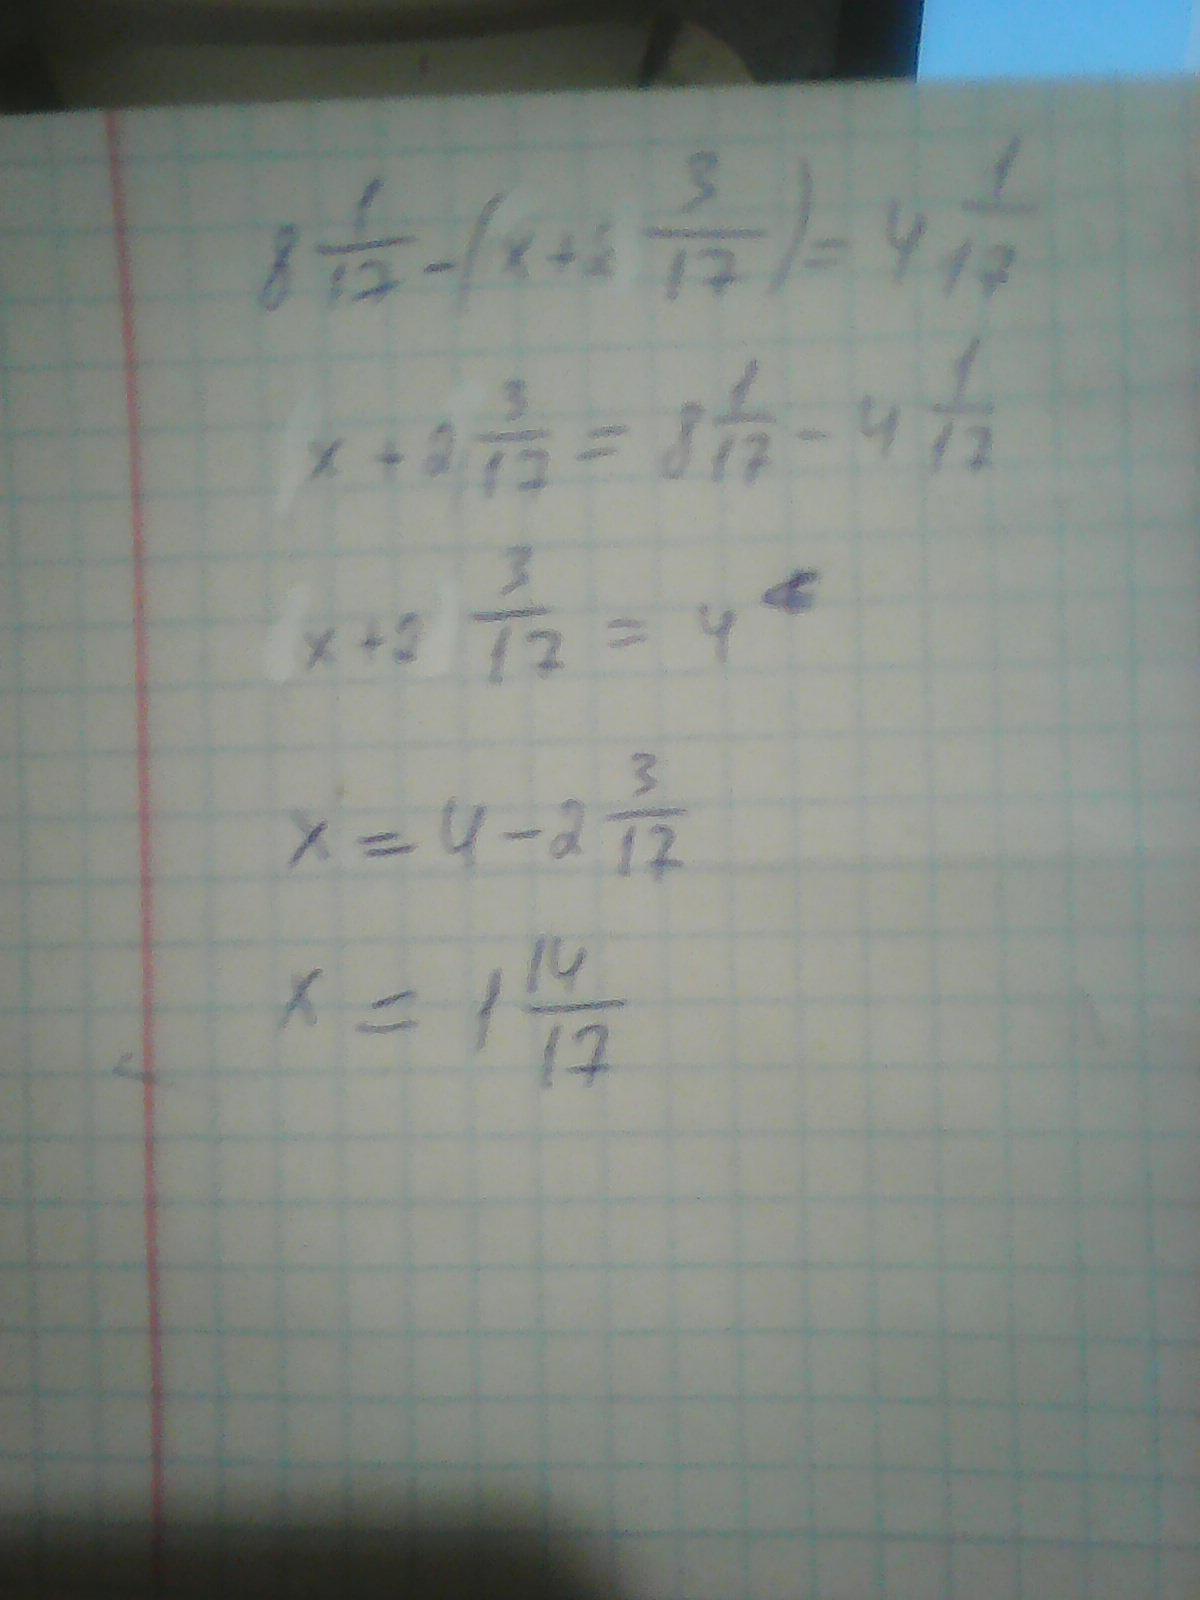 8 1/17 - (x + 2 3/17) = 4 1/17
x + 2 3/17 = 8 1/17 - 4 1/17
x + 2 3/17 = 4
x = 4 - 2 3/17
x = 1 14/17